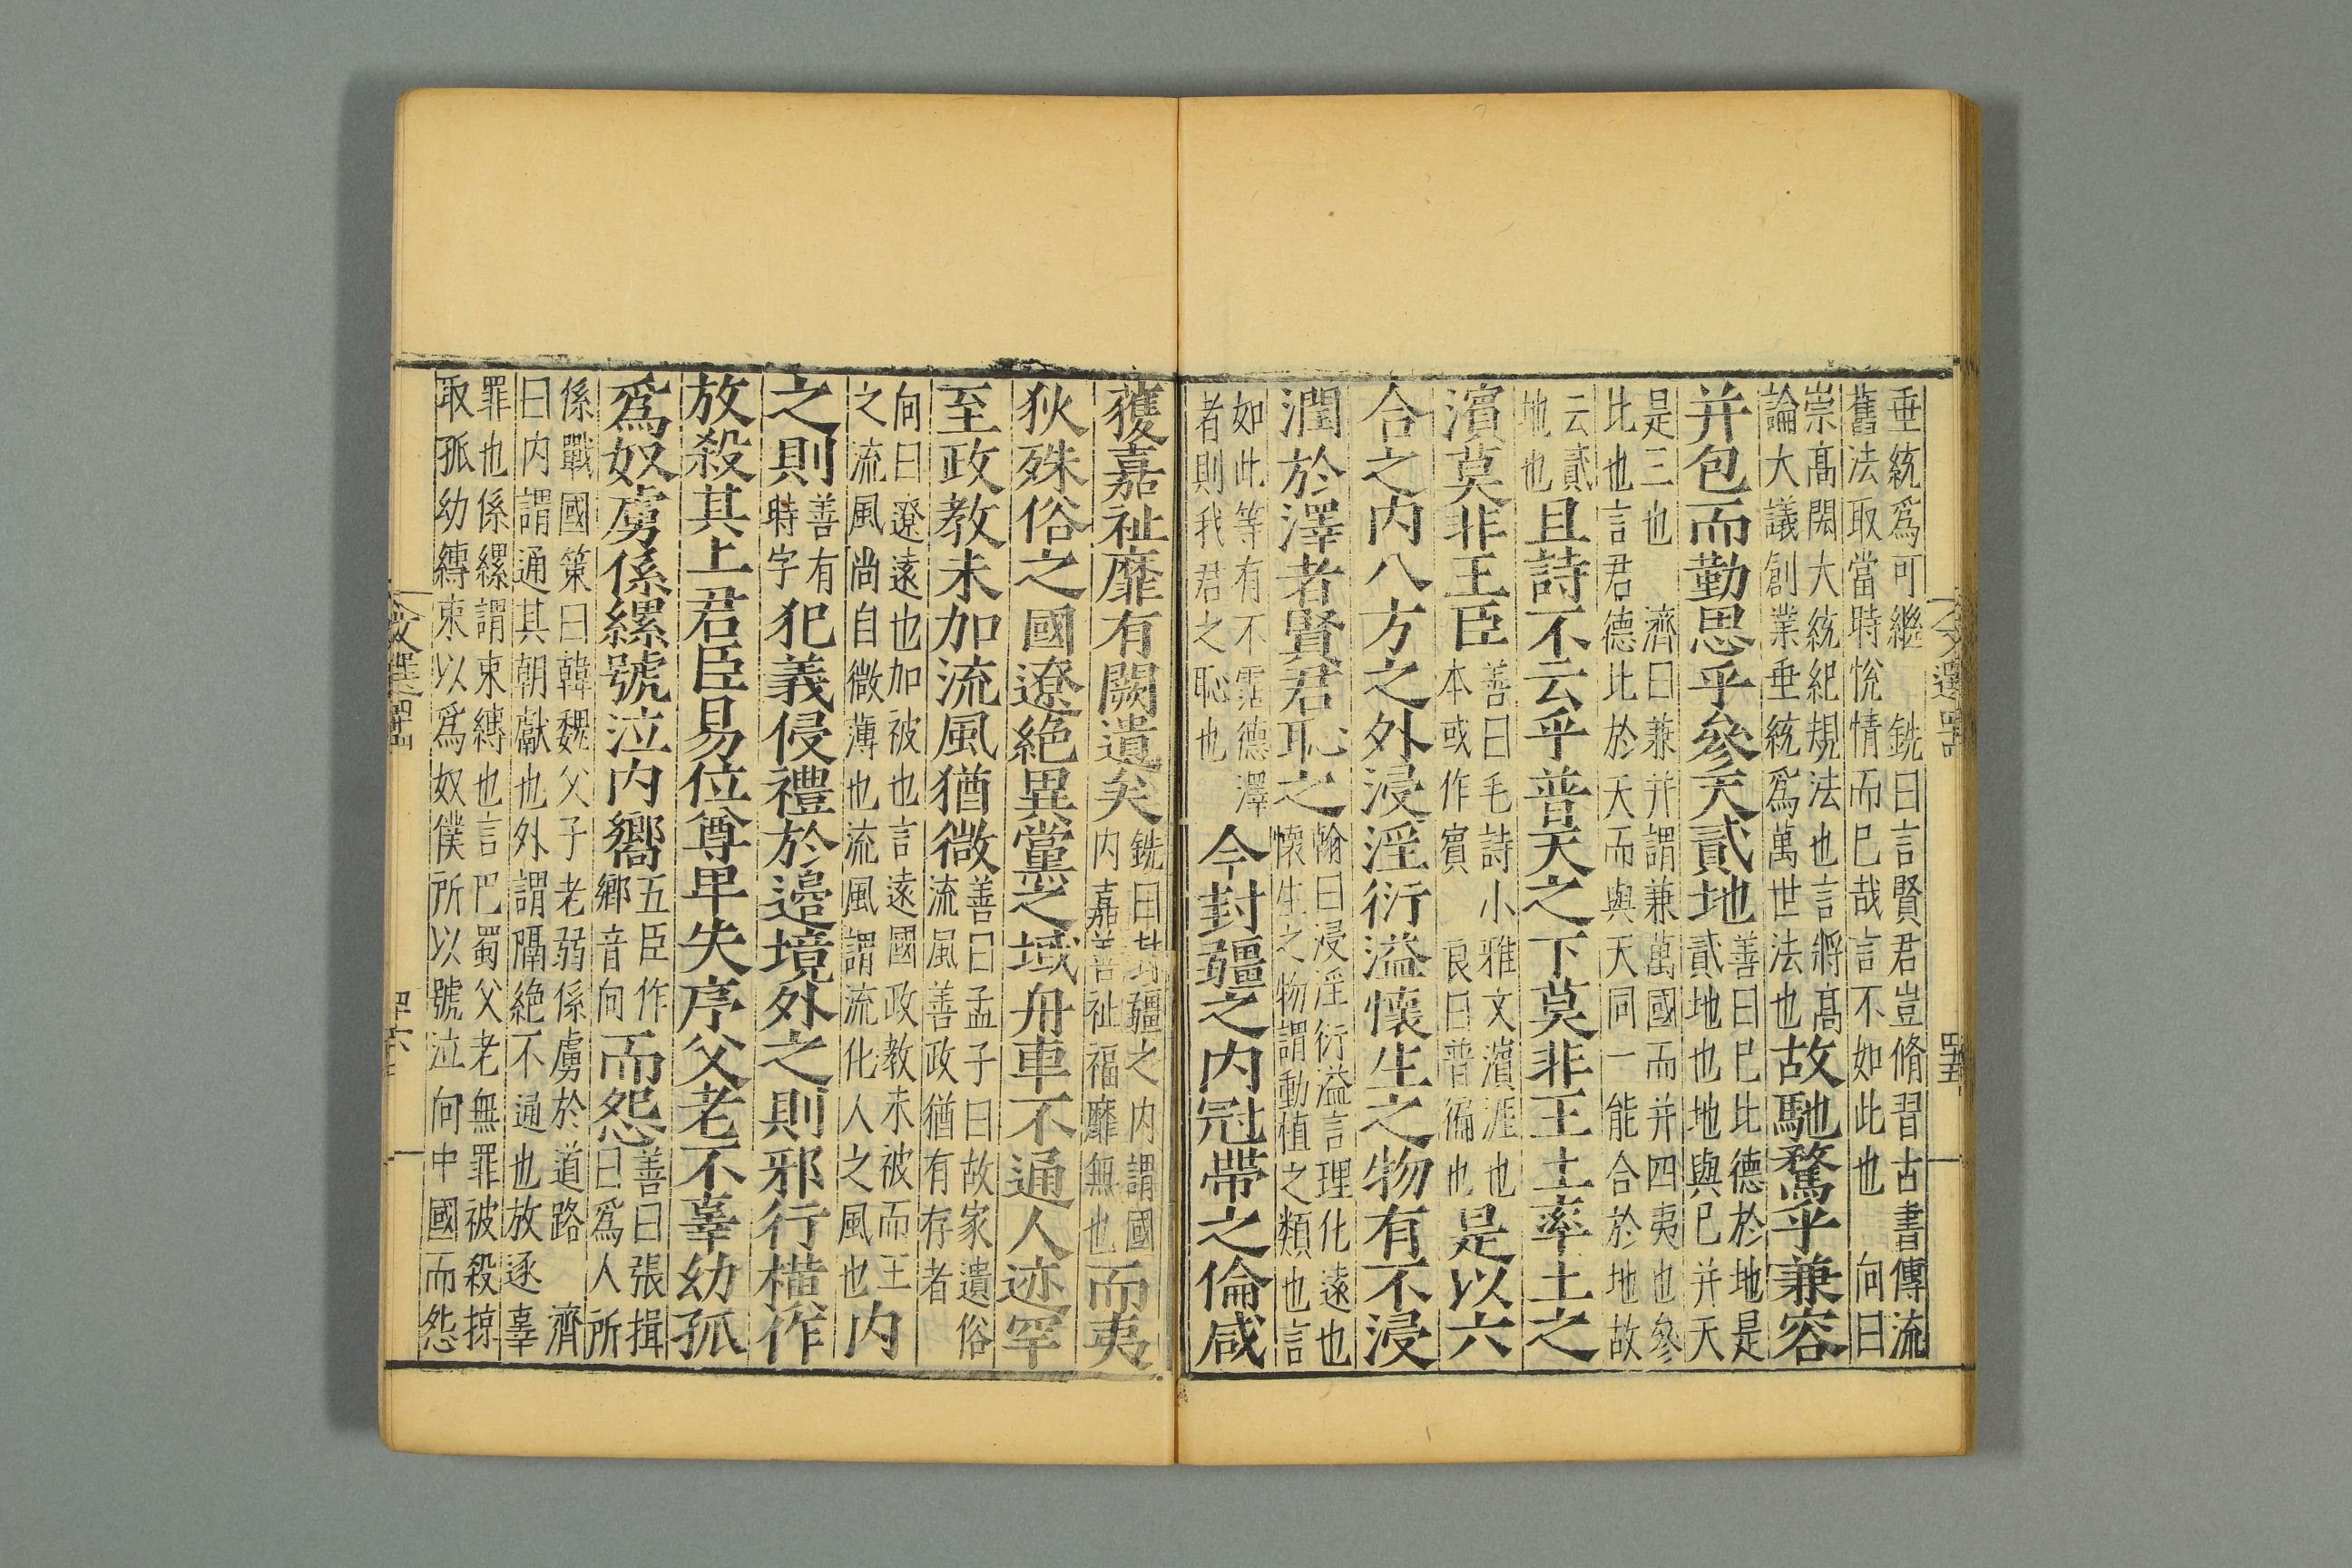 垂統爲可繼　銑曰言賢君豈脩習古書傳流
舊法取當時悅情而巳哉言不如此也　向曰
崇髙閎大統紀規法也言將髙
論大議創業垂統爲萬世法也
故馳騖乎兼容
并包而勤思乎參天貳地
善曰巳比德於地是
貳地也地與巳并天
是三也　濟曰兼并謂兼萬國而并四夷也參
比也言君德比於天而與天同一能合於地故
云貳
地也
且詩不云乎普天之下莫非王土率土之
濱莫非王臣
善曰毛詩小雅文濱涯也
本或作賓　良曰普徧也
是以六
合之内八方之外浸淫衍溢懷生之物有不浸
潤於澤者賢君恥之
翰曰浸淫衍溢言理化遠也
懷生之物謂動植之類也言
如此等有不霑德澤
者則我君之恥也
今封疆之内冠帶之倫咸
文選四十四
四十五
獲嘉祉靡有闕遺矣
銑曰封疆之内謂國
内嘉善祉福靡無也
而夷
狄殊俗之國遼絶異黨之域舟車不通人迹罕
至政教未加流風猶微
善曰孟子曰故家遺俗
流風善政猶有存者
向曰遼遠也加被也言遠國政教未被而王
之流風尚自微薄也流風謂流化人之風也
内
之則
善有
時字
犯義侵禮於邉境外之則邪行橫作
放殺其上君臣易位尊卑失序父老不辜幼孤
爲奴虜係縲號泣内嚮
五臣作
鄉音向
而怨
善曰張揖
曰爲人所
係戰國策曰韓魏父子老弱係虜於道路　濟
曰内謂通其朝獻也外謂隔絶不通也放逐辜
罪也係縲謂束縛也言巴蜀父老無罪被殺掠
取孤幼縳束以爲奴僕所以號泣向中國而怨
文選四十四
四十六